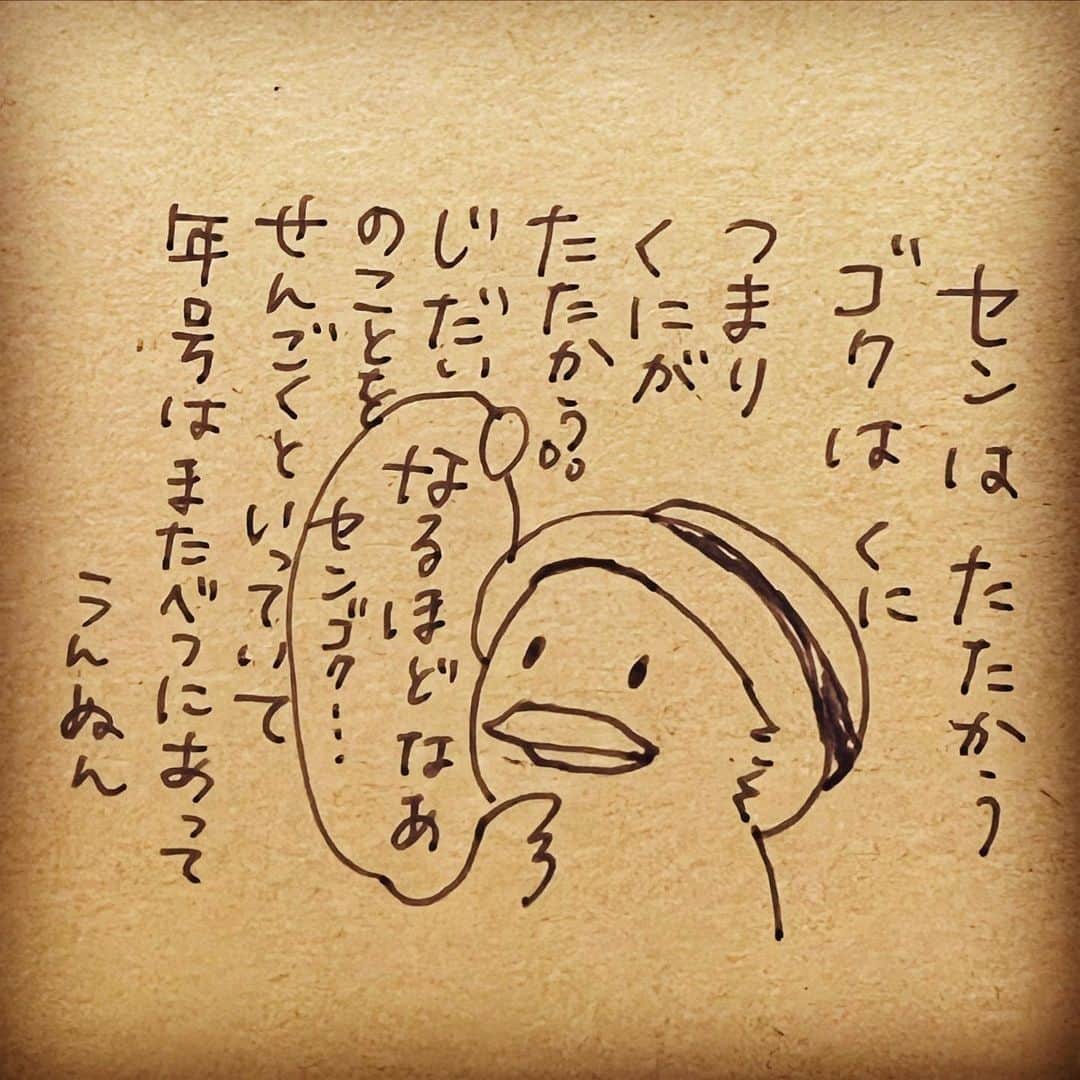 センは たたかう
ゴクは くに
つまり
くにが
たたかう？
じだい
のことを
せんごくと いっていて
年号は またべつにあって
うんぬん
なるほど なあ
センゴク…